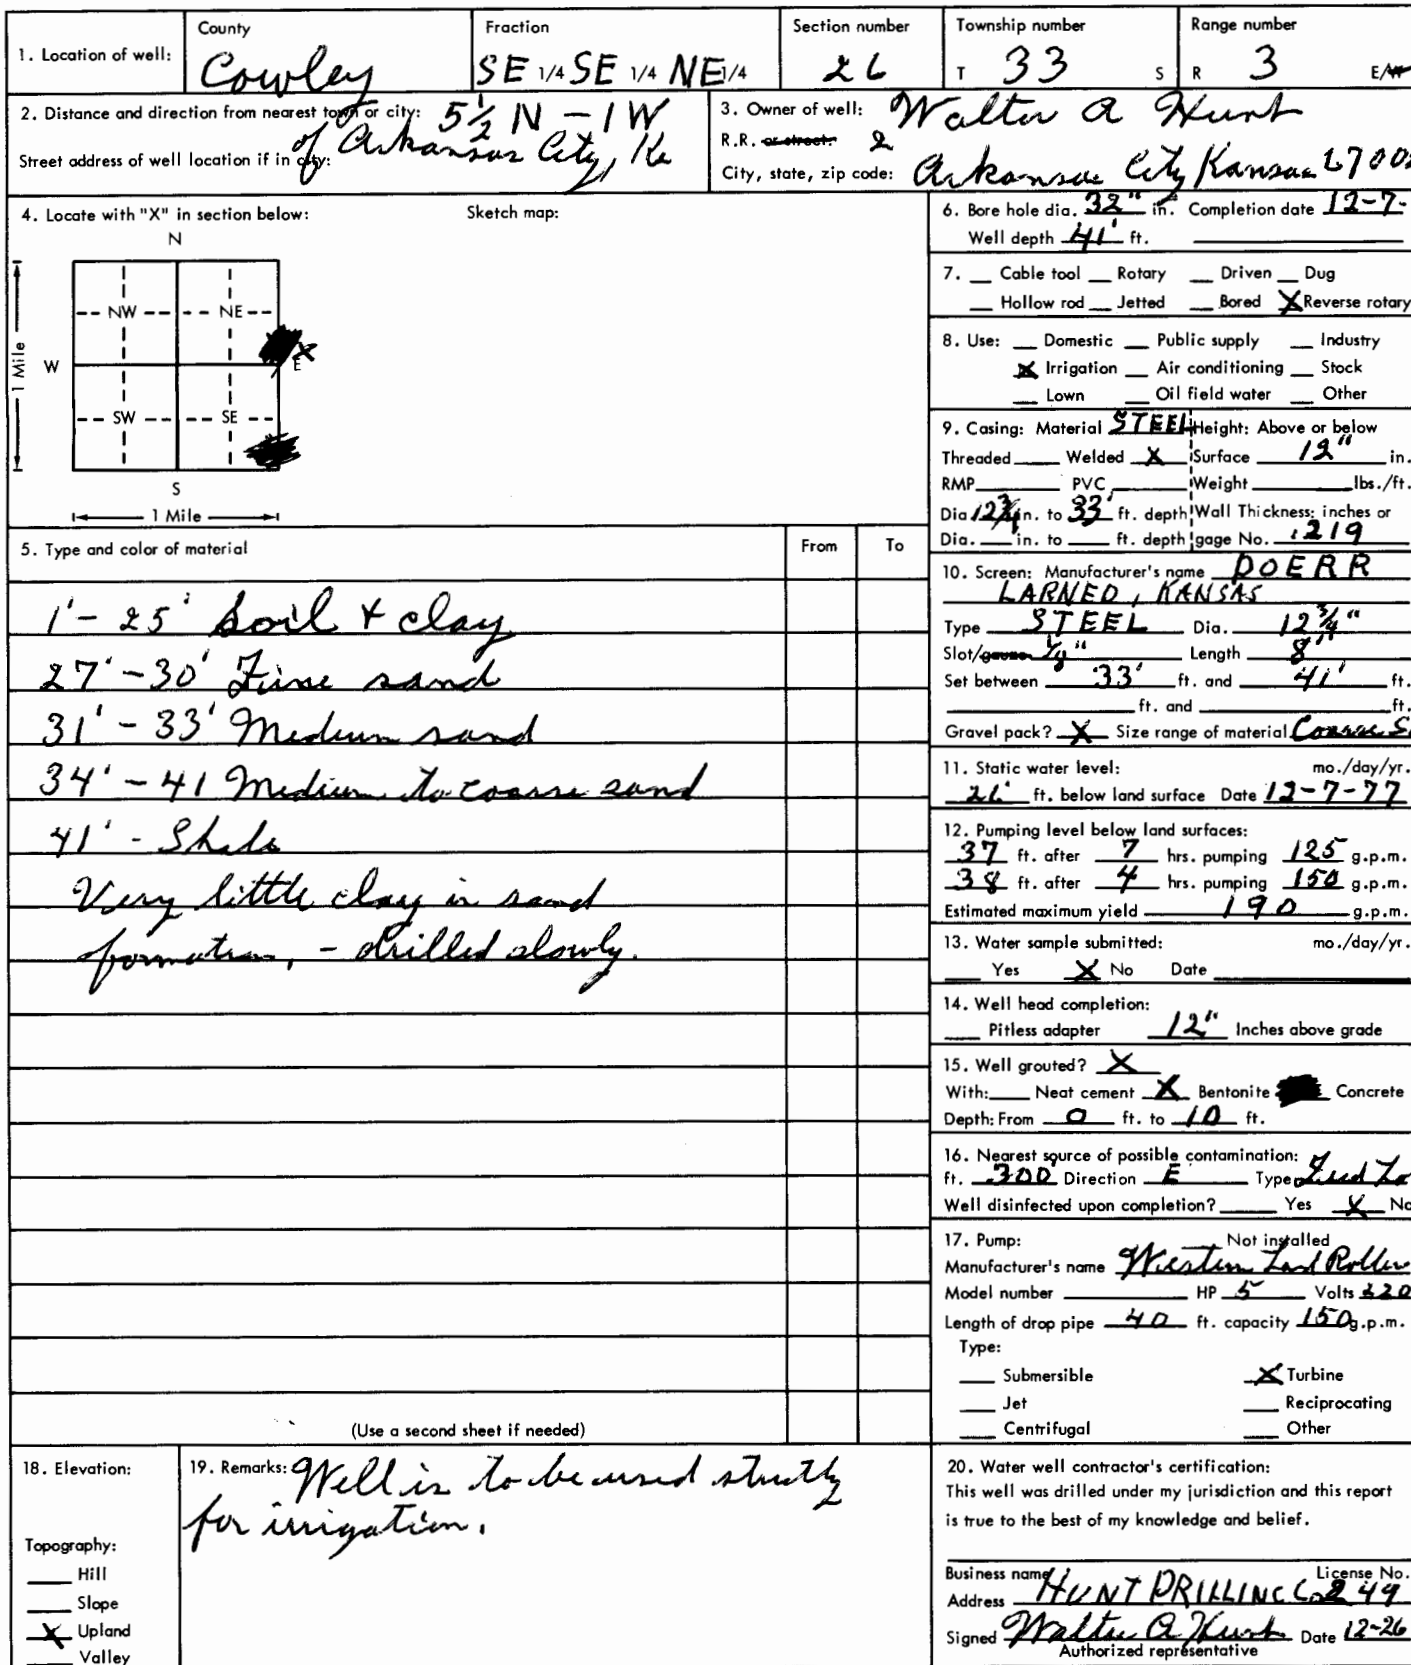 1. Location of well: County Fraction Section number Township number Range number
Cowley SE 1/4 SE 1/4 NE 1/4 26 T 33 S R 3 E/W
2. Distance and direction from nearest town or city: 5½ N - 1 W
of Arkansas City, Ks
Street address of well location if in city:
3. Owner of well: Walter A Hunt
R.R. or street: 2
City, state, zip code: Arkansas City Kansas 6700
4. Locate with "X" in section below: Sketch map:
N
NW NE
1 Mile W X E
SW SE
S
1 Mile
5. Type and color of material From To
1' - 25' Soil & clay
27' - 30' Fine sand
31' - 33' Medium sand
34' - 41 Medium to coarse sand
41' - Shale
Very little clay in sand
formation, - drilled slowly.
(Use a second sheet if needed)
6. Bore hole dia. 32" in. Completion date 12-7-
Well depth 41' ft.
7. Cable tool Rotary Driven Dug
Hollow rod Jetted Bored X Reverse rotary
8. Use: Domestic Public supply Industry
X Irrigation Air conditioning Stock
Lown Oil field water Other
9. Casing: Material STEEL Height: Above or below
Threaded Welded X Surface 12" in.
RMP PVC Weight lbs./ft.
Dia 12¾ in. to 33' ft. depth Wall Thickness: inches or
Dia. in. to ft. depth gage No. .219
10. Screen: Manufacturer's name DOERR
LARNED, KANSAS
Type STEEL Dia. 12¾"
Slot/gauze 1/8" Length 8'
Set between 33' ft. and 41' ft.
ft. and ft.
Gravel pack? X Size range of material Coarse S
11. Static water level: mo./day/yr.
26' ft. below land surface Date 12-7-77
12. Pumping level below land surfaces:
37 ft. after 7 hrs. pumping 125 g.p.m.
38 ft. after 4 hrs. pumping 150 g.p.m.
Estimated maximum yield 190 g.p.m.
13. Water sample submitted: mo./day/yr.
Yes X No Date
14. Well head completion:
Pitless adapter 12" Inches above grade
15. Well grouted? X
With: Neat cement X Bentonite Concrete
Depth: From 0 ft. to 10 ft.
16. Nearest source of possible contamination:
ft. 300' Direction E Type Feed Lo
Well disinfected upon completion? Yes X No
17. Pump: Not installed
Manufacturer's name Western Land Roller
Model number HP 5 Volts 220
Length of drop pipe 40 ft. capacity 150 g.p.m.
Type:
Submersible X Turbine
Jet Reciprocating
Centrifugal Other
18. Elevation:
Topography:
Hill
Slope
X Upland
Valley
19. Remarks: Well is to be used strictly
for irrigation.
20. Water well contractor's certification:
This well was drilled under my jurisdiction and this report
is true to the best of my knowledge and belief.
Business name License No.
Address HUNT DRILLING Co. 249
Signed Walter A Hunt Date 12-26
Authorized representative